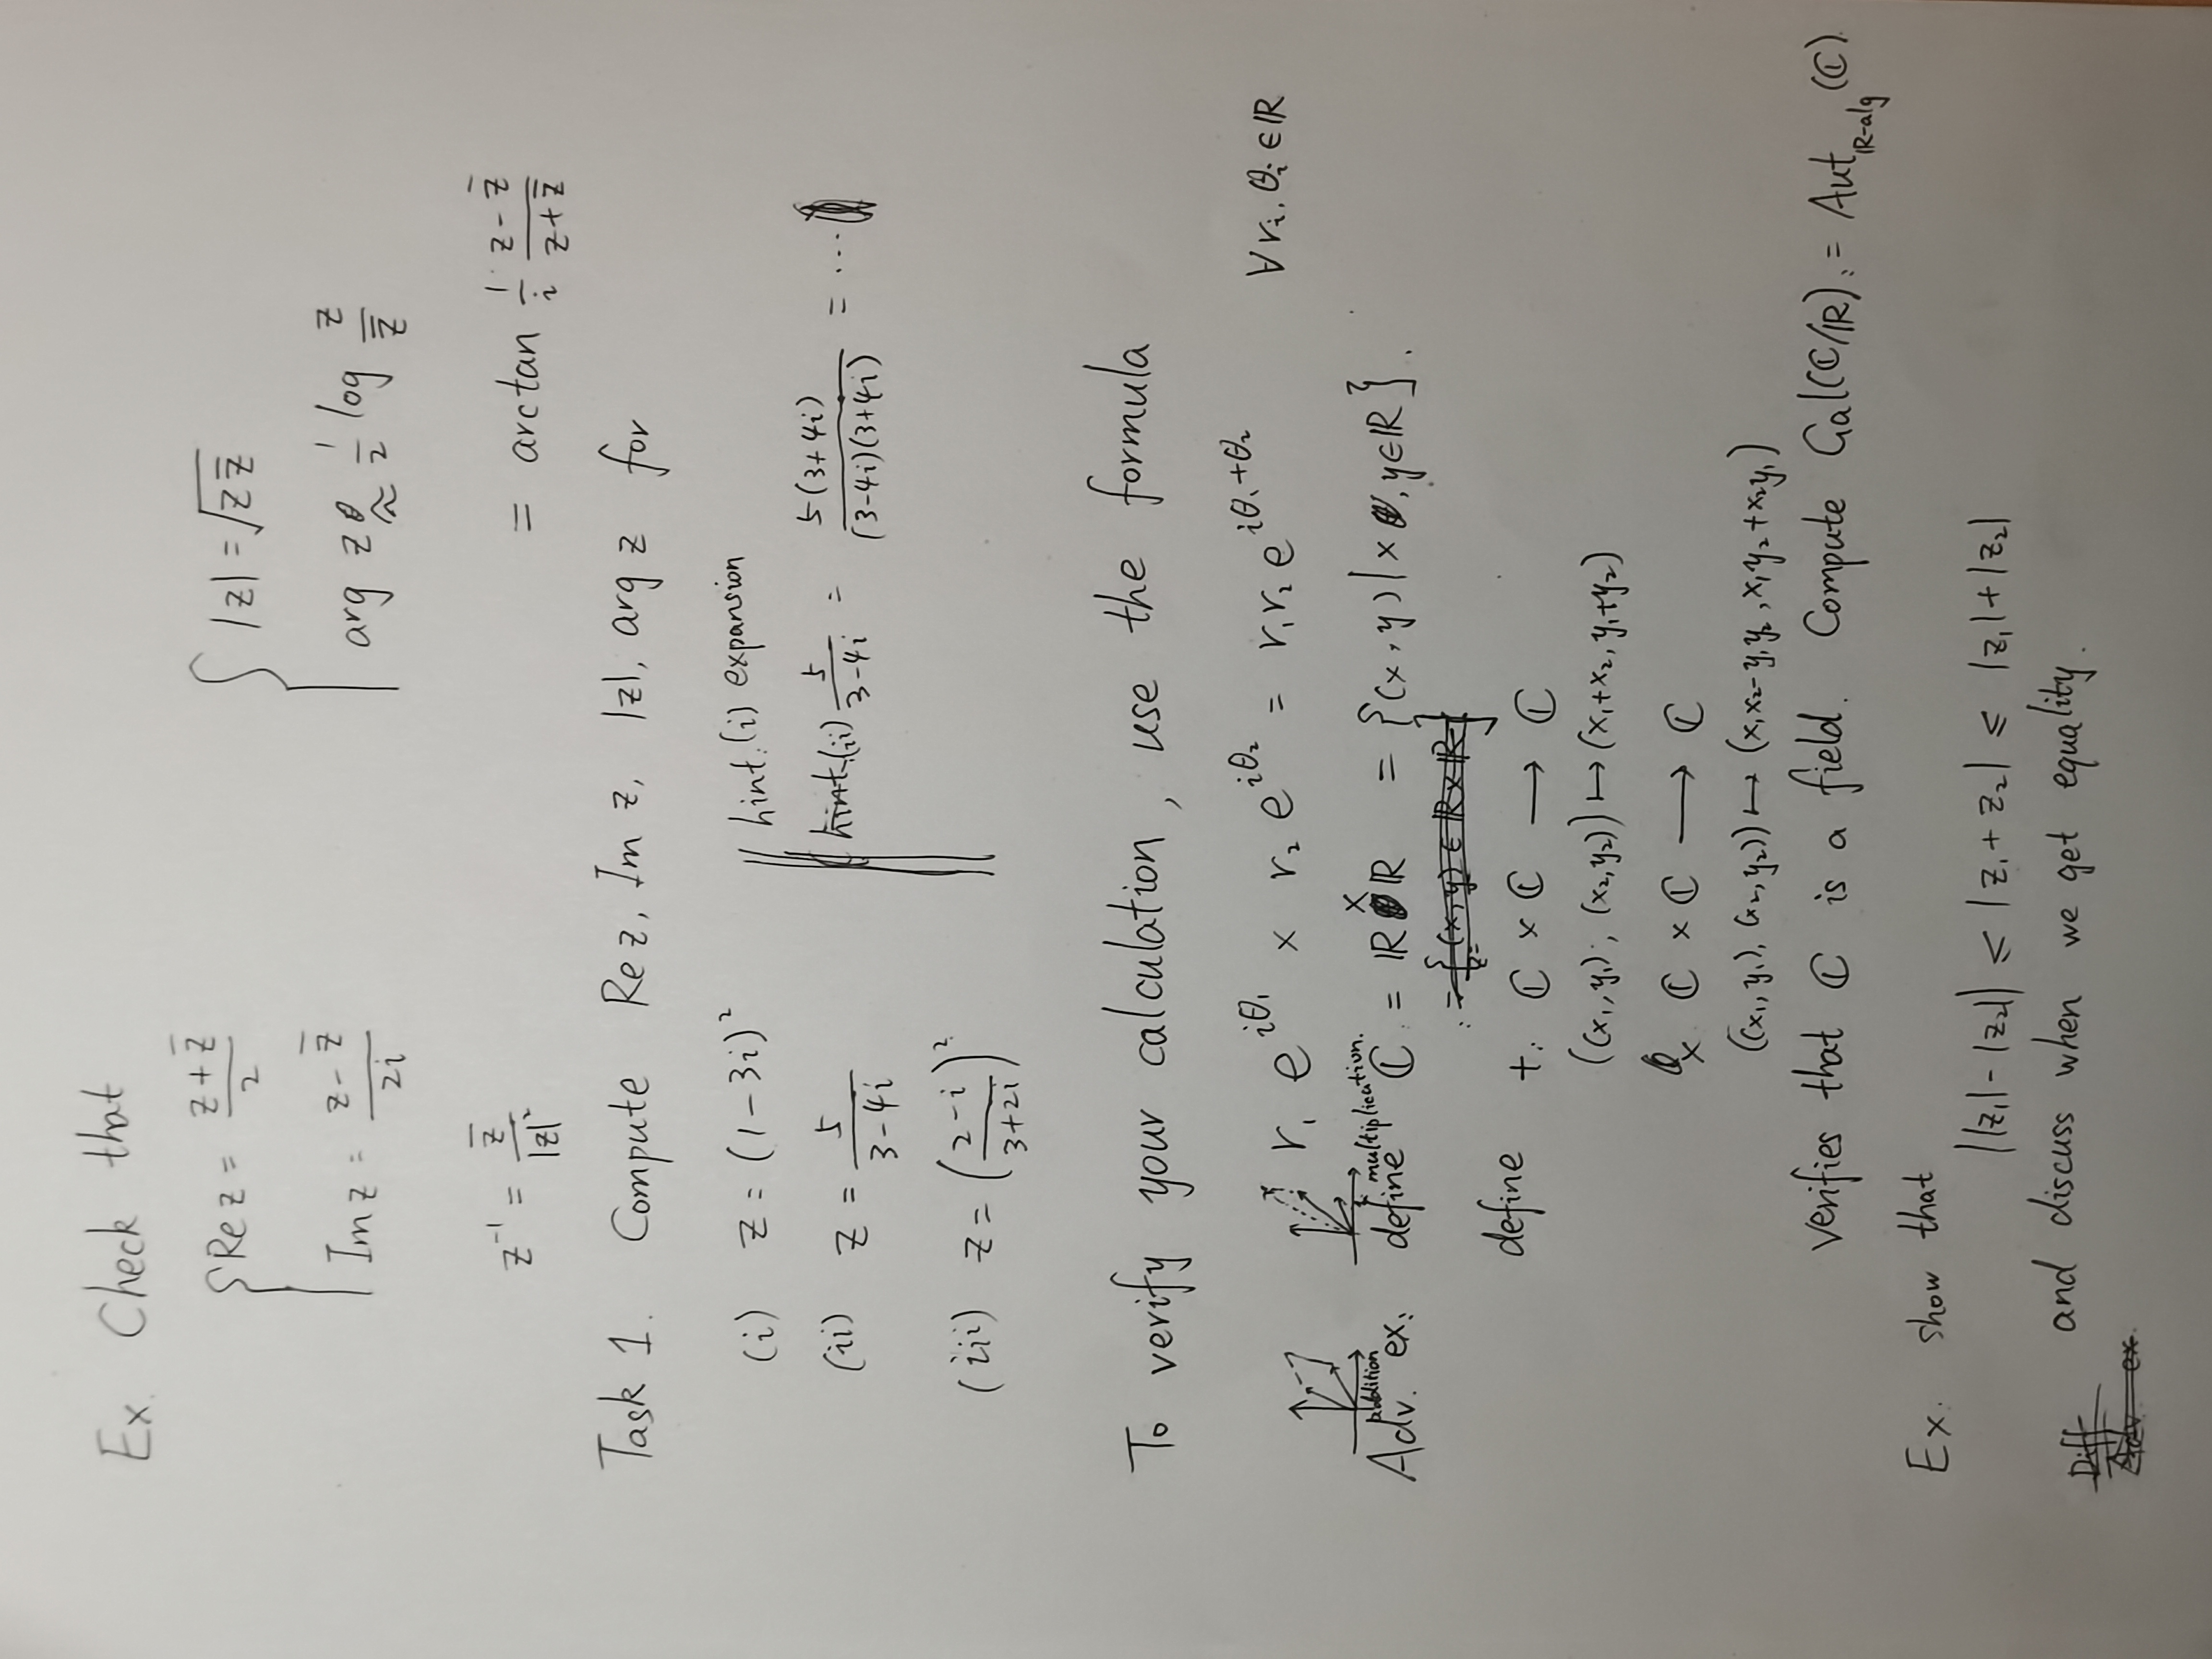 Ex. Check that
Re z = (z + z̄)/2
|z| = √(z z̄)
Im z = (z - z̄)/(2i)
arg z ≈ 1/2 log z/z̄
z⁻¹ = z̄/|z|²
= arctan 1/i (z - z̄)/(z + z̄)
Task 1. Compute Re z, Im z, |z|, arg z for
(i) z = (1-3i)²
hint. (i) expansion
(ii) z = 5/(3-4i)
hint.(ii) 5/(3-4i) = 5(3+4i)/((3-4i)(3+4i)) = ...
(iii) z = ((2-i)/(3+2i))²
To verify your calculation, use the formula
r₁ e^{iθ₁} × r₂ e^{iθ₂} = r₁r₂ e^{iθ₁+θ₂} ∀ rᵢ, θᵢ ∈ ℝ
addition
multiplication.
Adv. ex: define ℂ := ℝ × ℝ = {(x, y) | x, y ∈ ℝ}.
:= {(x,y) ∈ ℝ × ℝ}
define +: ℂ × ℂ ⟶ ℂ
((x₁, y₁), (x₂, y₂)) ↦ (x₁+x₂, y₁+y₂)
×. ℂ × ℂ ⟶ ℂ
((x₁, y₁), (x₂, y₂)) ↦ (x₁x₂-y₁y₂, x₁y₂+x₂y₁)
verifies that ℂ is a field. Compute Gal(ℂ/ℝ) := Aut_{ℝ-alg}(ℂ).
Ex. show that
||z₁| - |z₂|| ⩽ |z₁ + z₂| ⩽ |z₁| + |z₂|
and discuss when we get equality.
Diff
Adv ex.